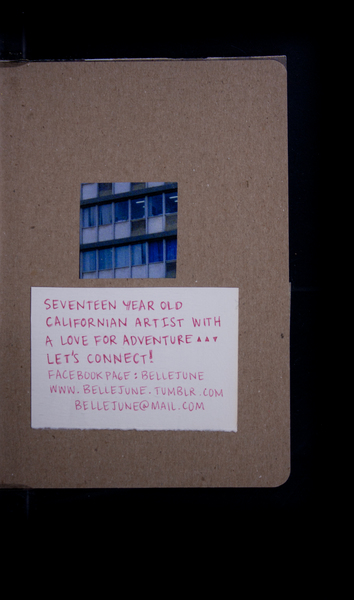 SEVENTEEN YEAR OLD
CALIFORNIAN ARTIST WITH
A LOVE FOR ADVENTURE ▲▲▼
LET'S CONNECT!
FACEBOOK PAGE : BELLEJUNE
WWW.BELLEJUNE.TUMBLR.COM
BELLEJUNE@MAIL.COM